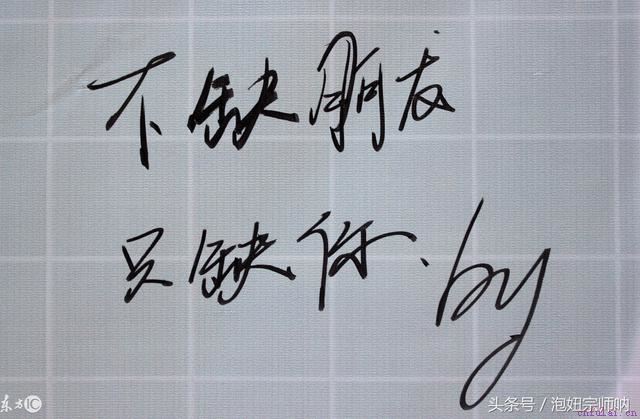 不缺朋友
只缺你. by
东方IC
头条号 / 泡妞宗师呐
cnfukai.cn